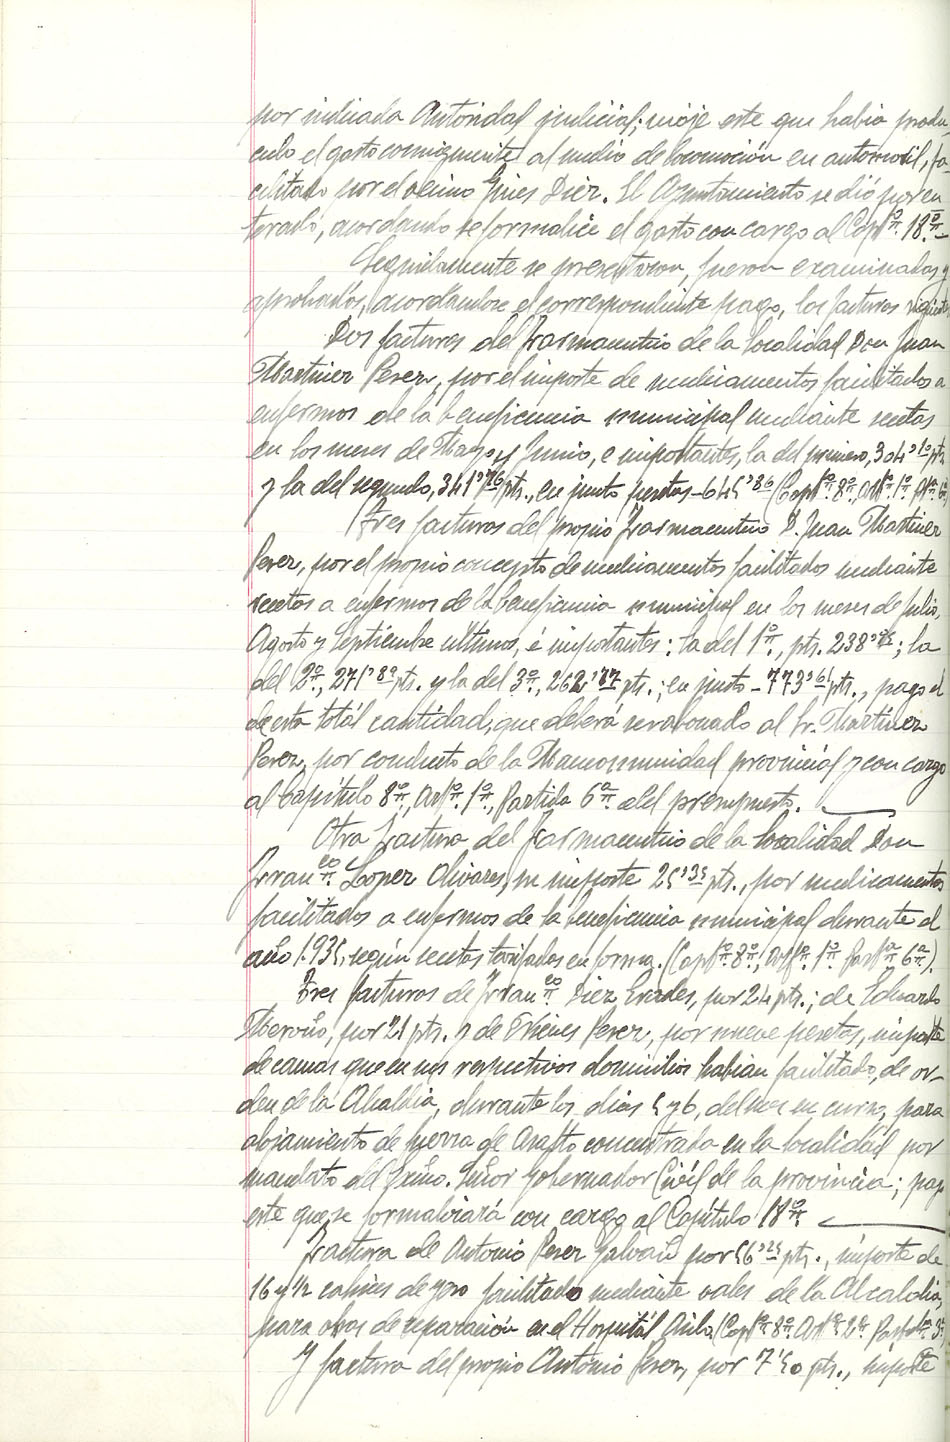 por indicada Autoridad judicial; viaje este que habia produ
cido el gasto consiguiente al medio de locomoción en automovil, fa-
cilitado por el vecino Gines Diez. El Ayuntamiento se dió por en
terado, acordando se formalice el gasto con cargo al Capº. 18º.-
Seguidamente se presentaron, fueron examinadas y
aprobadas, acordandose el correspondiente pago, las facturas siguientes
Dos facturas del Farmaceutico de la localidad Don Juan
Martinez Perez, por el importe de medicamentos facilitados a
enfermos de la beneficencia municipal mediante recetas
en los meses de Mayo y Junio, e importantes, la del primero, 304'10 pts
y la del segundo, 341'76 pts., en junto pesetas -645'86 (Captº. 8º. artº. 1º. Pª. 6ª
Tres facturas del propio Farmaceutico D. Juan Martinez
Perez, por el propio concepto de medicamentos facilitados mediante
recetas a enfermos de la beneficencia municipal en los meses de Julio,
Agosto y Septiembre ultimos, é importantes: la del 1º., pts. 238'95; la
del 2º., 271'89 pts. y la del 3º., 262'77 pts.; en junto - 773'61 pts., pago el
de esta totál cantidad, que deberá ser abonado al Sr. Martinez
Perez, por conducto de la Mancomunidad provincial y con cargo
al Capítulo 8º., Artº. 1º., Partida 6ª. del presupuesto.
Otra factura del Farmaceutico de la localidad Don
Francº. Lopez Olivares, su importe 25'35 pts., por medicamentos
facilitados a enfermos de la beneficencia municipal durante el
año 1.935, según recetas tarifadas en forma. (Captº. 8º., Artº. 1º. Partª. 6ª.).
Tres facturas de Francº. Diez, por 24 pts.; de Eduardo
Meroño, por 21 pts. y de Nieves Perez, por nueve pesetas, importe
de camas que en sus respectivos domicilios habian facilitado, de or-
den de la Alcaldia, durante los dias 5 y 6, del mes en curso, para
alojamiento de fuerza de Asalto concentrada en la localidad por
mandato del Excmo. Señor Gobernador Civíl de la provincia; pago
este que se formalizará con cargo al Capítulo 18º.
Factura de Antonio Perez Galvañ por 56'25 pts., importe de
16 y ½ cahices de yeso facilitado mediante vales de la Alcaldia,
para obras de reparación en el Hospitál Asilo (Captº. 8º. Artº. 2º. Partida. 3ª,
Y factura del propio Antonio Perez, por 7'50 pts., importe